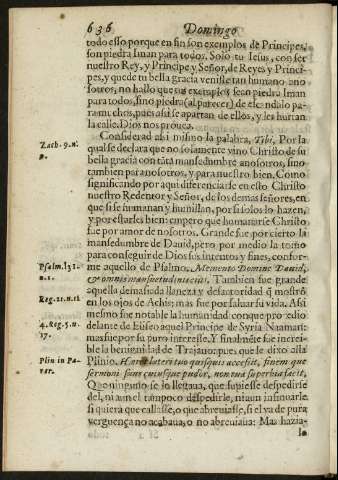 636 Domingo
todo esso porque en fin son exemplos de Principes,
son piedra Iman para todos. Solo tu Iesus, con ser
nuestro Rey, y Principe, y Señor, de Reyes y Princi-
pes, y que de tu bella gracia veniste tan humano a no
sotros, no hallo que tus exemplos sean piedra Iman
para todos, sino piedra (al parecer) de escandalo pa-
ra muchos, pues assi se apartan de ellos, y les hurtan
la calle. Dios nos prouea.
Considerad assi mismo la palabra, Tibi, Por la
qual se declara que no solamente vino Christo de su
bella gracia con tãta mansedumbre a nosotros, sino
tambien para nosotros, y para nuestro bien. Como
significando por aqui diferenciarse en esto Christo
nuestro Redentor y Señor, de los demas señores, en
que si se humanan y humillan, por si solos lo hazen,
y por estarles bien: empero que humanarse Christo
fue por amor de nosotros. Grande fue por cierto la
mansedumbre de Dauid, pero por medio la tomo
para conseguir de Dios sus intentos y fines, confor-
me aquello de Psalmo, Memento Domine Dauid,
& omnis mansuetudinis eius, Tambien fue grande
aquella desnuda llaneza y desautoridad q̃ mostrò
en los ojos de Achis; mas fue por saluar su vida. Assi
mesmo fue notable la humanidad con que procedio
delante de Eliseo aquel Principe de Syria Naaman:
mas fue por su puro interesse. Y finalmēte fue increi-
ble la benignidad de Trajano, pues que le dixo assi
Plinio. Haret lateri tuo quisquis accessit, finem que
sermoni suus cuiusque pudor, non tua superbia facit,
Que ninguno se lo llegaua, que supiesse despedirse
del, ni aun el tampoco despedirle, ni aun insinuarle
si queria que callasse, o que abreuiasse, si el va de pura
verguença no acabaua, o no abreuiaua: Mas hazia-
lo
Zach. 9. n.
9.
Psalm. 131.
n. 1.
Reg. 21. n. 12
4. Reg. 5. n.
17.
Plin in Pa-